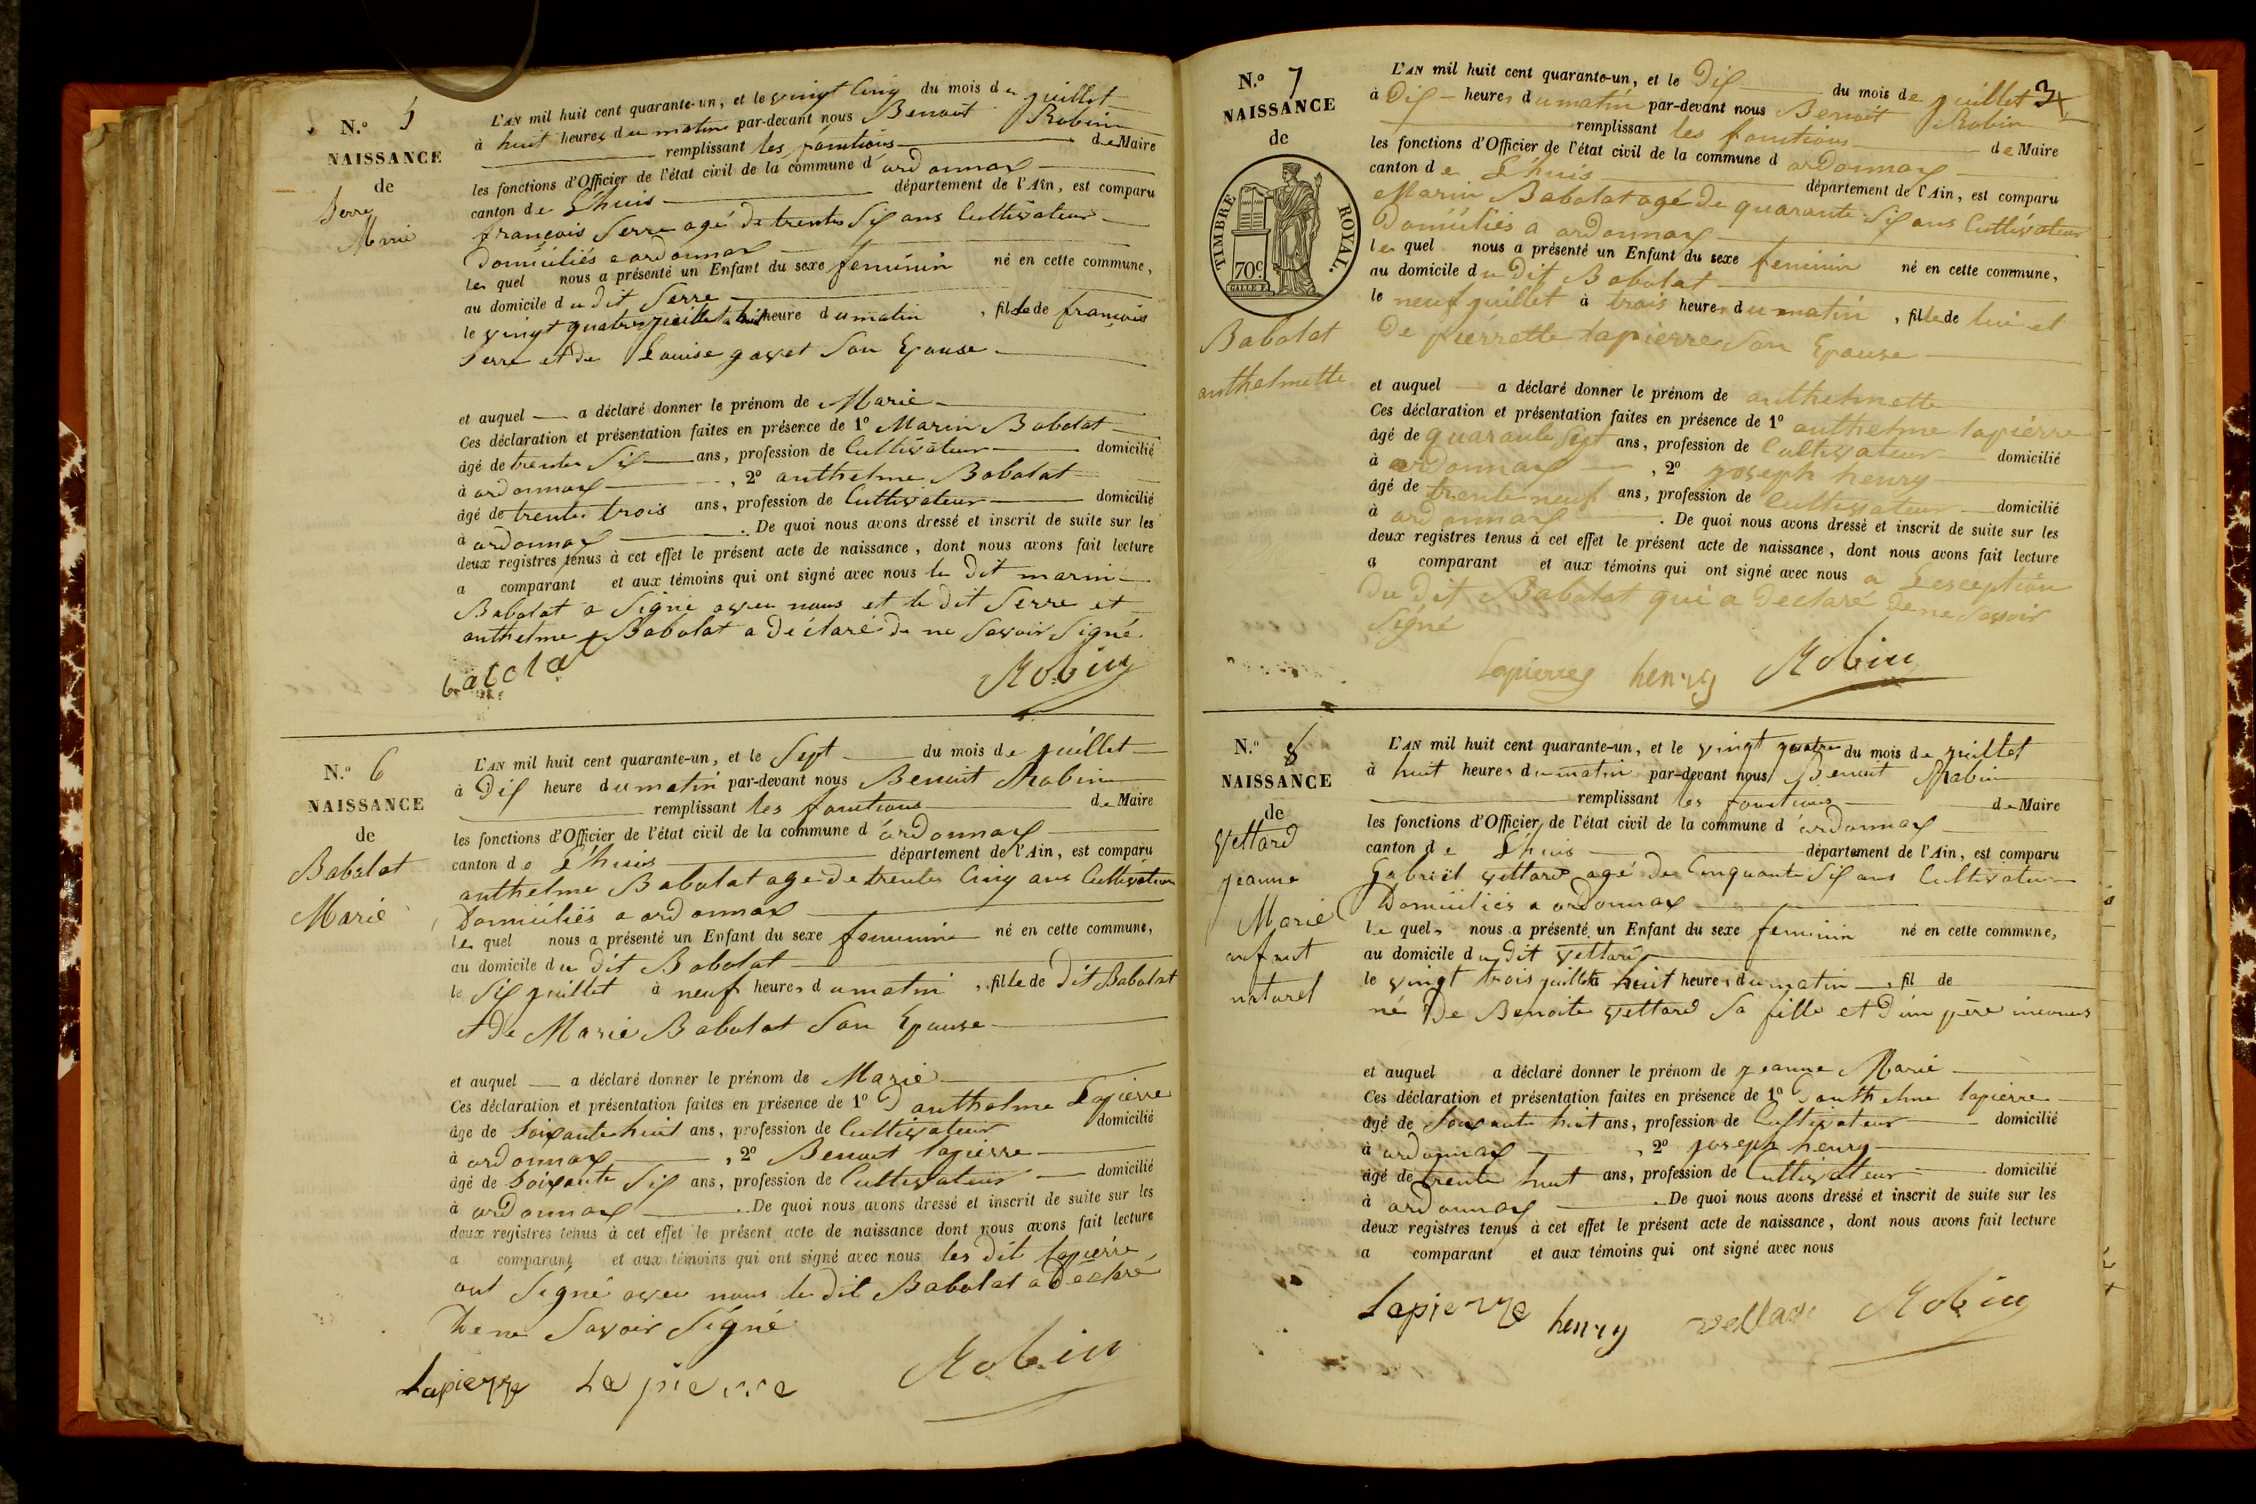 N.º 5
NAISSANCE
de
Serre
Marie
L'AN mil huit cent quarante-un, et le vingt Cinq du mois de juillet
à huit heures du matin par-devant nous Benoit Robin
remplissant les fonctions de Maire
les fonctions d'Officier de l'état civil de la commune d'ordonnax
canton de Lhuis département de l'Ain, est comparu
françois Serre agé de trente Six ans Cultivateur
Domiciliés a ordonnax
le quel nous a présenté un Enfant du sexe feminin né en cette commune,
au domicile du dit Serre
le vingt quatre juillet à huit heure du matin, fille de françois
Serre et de Louise gavet Son Epouse
et auquel a déclaré donner le prénom de Marie
Ces déclaration et présentation faites en présence de 1º Marin Babolat
âgé de trente Six ans, profession de Cultivateur domicilié
à ordonnax, 2º anthelme Babolat
âgé de trente trois ans, profession de Cultivateur domicilié
à ordonnax. De quoi nous avons dressé et inscrit de suite sur les
deux registres tenus à cet effet le présent acte de naissance, dont nous avons fait lecture
a comparant et aux témoins qui ont signé avec nous le Dit marin
Babolat a Signé avec nous et le dit Serre et
anthelme Babolat a Déclaré de ne Savoir Signé
Robin
N.º 6
NAISSANCE
de
Babolat
Marie
L'AN mil huit cent quarante-un, et le Sept du mois de juillet
à Dix heure du matin par-devant nous Benoit Robin
remplissant les fonctions de Maire
les fonctions d'Officier de l'état civil de la commune d'ordonnax
canton de Lhuis département de l'Ain, est comparu
anthelme Babolat agé de trente Cinq ans Cultivateur
Domiciliés a ordonnax
le quel nous a présenté un Enfant du sexe feminin né en cette commune,
au domicile du dit Babolat
le Six juillet à neuf heures du matin, fille de Dit Babolat
et de Marie Babolat Son Epouse
et auquel a déclaré donner le prénom de Marie
Ces déclaration et présentation faites en présence de 1º D'anthelme Lapierre
âgé de Soixante huit ans, profession de Cultivateur domicilié
à ordonnax, 2º Benoit lapierre
âgé de Soixante Six ans, profession de Cultivateur domicilié
à ordonnax. De quoi nous avons dressé et inscrit de suite sur les
deux registres tenus à cet effet le présent acte de naissance dont nous avons fait lecture
a comparant et aux témoins qui ont signé avec nous les Dit lapierre
ont Signé avec nous le dit Babolat a Déclaré
De ne Savoir Signé
Lapierre Lapierre Robin
N.º 7
NAISSANCE
de
TIMBRE ROYAL.
70c
Babolat
anthelmette
3
L'AN mil huit cent quarante-un, et le Dix du mois de juillet
à Dix heures du matin par-devant nous Benoit Robin
remplissant les fonctions de Maire
les fonctions d'Officier de l'état civil de la commune d ordonnax
canton de Lhuis département de l'Ain, est comparu
Marin Babolat agé de quarante Six ans Cultivateur
Domiciliés a ordonnax
le quel nous a présenté un Enfant du sexe feminin né en cette commune,
au domicile du Dit Babolat
le neuf juillet à trois heures du matin, fille de lui et
De pierrette lapierre Son Epouse
et auquel a déclaré donner le prénom de anthelmette
Ces déclaration et présentation faites en présence de 1º anthelme lapierre
âgé de quarante Sept ans, profession de Cultivateur domicilié
à ordonnax, 2º joseph henry
âgé de trente neuf ans, profession de Cultivateur domicilié
à ordonnax. De quoi nous avons dressé et inscrit de suite sur les
deux registres tenus à cet effet le présent acte de naissance, dont nous avons fait lecture
a comparant et aux témoins qui ont signé avec nous a Lexception
Du dit Babolat qui a Declaré De ne Savoir
Signé
Lapierre henry Robin
N.º 8
NAISSANCE
de
Vettard
jeanne
Marie
enfant
naturel
L'AN mil huit cent quarante-un, et le vingt quatre du mois de juillet
à huit heures du matin par-devant nous Benoit Robin
remplissant les fonctions de Maire
les fonctions d'Officier de l'état civil de la commune d'ordonnax
canton de Lhuis département de l'Ain, est comparu
Gabriel Vettard agé de Cinquante Six ans Cultivateur
Domiciliés a ordonnax
le quel nous a présenté un Enfant du sexe feminin né en cette commune,
au domicile du Dit Vettard
le vingt trois juillet à huit heures du matin, fil de
né De Benoite Vettard Sa fille et D'un père inconnu
et auquel a déclaré donner le prénom de jeanne Marie
Ces déclaration et présentation faites en présence de 1º D'anthelme lapierre
âgé de Soixante huit ans, profession de Cultivateur domicilié
à ordonnax, 2º joseph henry
âgé de trente huit ans, profession de Cultivateur domicilié
à ordonnax. De quoi nous avons dressé et inscrit de suite sur les
deux registres tenus à cet effet le présent acte de naissance, dont nous avons fait lecture
a comparant et aux témoins qui ont signé avec nous
Lapierre henry vettard Robin